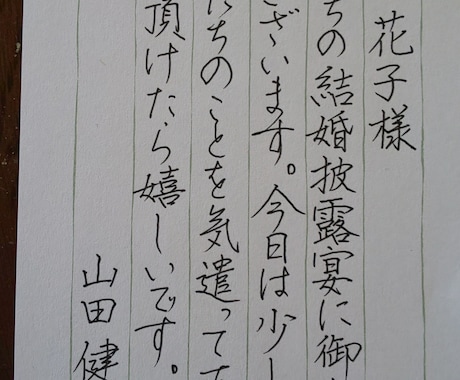 花子様
ちの結婚披露宴に御
ざいます。今日は少し
ちのことを気遣って
頂けたら嬉しいです。
山田健